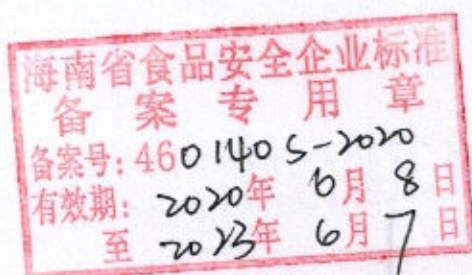 海南省食品安全企业标准
备案专用章
备案号:460140S-2020
有效期:2020年6月8日
至2023年6月7日